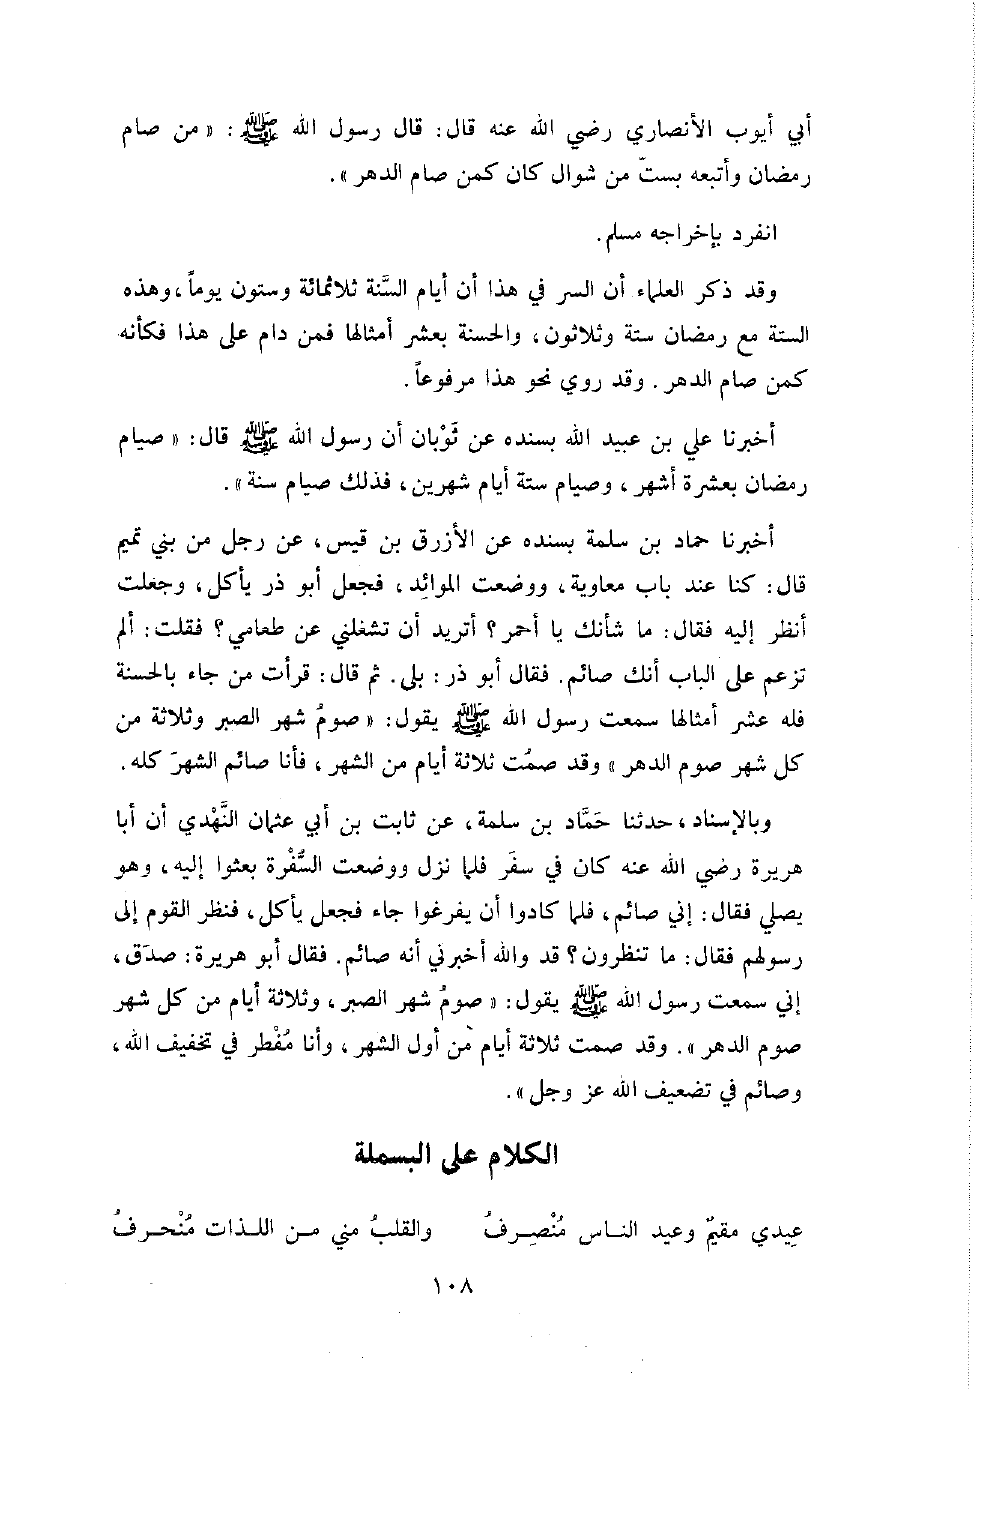 أبي أيوب الأنصاري رضي الله عنه قال: قال رسول الله ﷺ: «من صام
رمضان وأتبعه بستّ من شوال كان كمن صام الدهر».
انفرد بإخراجه مسلم.
وقد ذكر العلماء أن السر في هذا أن أيام السَّنة ثلاثمائة وستون يوماً، وهذه
الستة مع رمضان ستة وثلاثون، والحسنة بعشر أمثالها فمن دام على هذا فكأنه
كمن صام الدهر. وقد روي نحو هذا مرفوعاً.
أخبرنا علي بن عبيد الله بسنده عن ثَوْبان أن رسول الله ﷺ قال: «صيام
رمضان بعشرة أشهر، وصيام ستة أيام شهرين، فذلك صيام سنة».
أخبرنا حماد بن سلمة بسنده عن الأزرق بن قيس، عن رجل من بني تميم
قال: كنا عند باب معاوية، ووضعت الموائد، فجعل أبو ذر يأكل، وجعلت
أنظر إليه فقال: ما شأنك يا أحمر؟ أتريد أن تشغلني عن طعامي؟ فقلت: ألم
تزعم على الباب أنك صائم. فقال أبو ذر: بلى. ثم قال: قرأت من جاء بالحسنة
فله عشر أمثالها سمعت رسول الله ﷺ يقول: «صومُ شهر الصبر وثلاثة من
كل شهر صوم الدهر» وقد صمُت ثلاثة أيام من الشهر، فأنا صائم الشهرَ كله.
وبالإسناد، حدثنا حَمَّاد بن سلمة، عن ثابت بن أبي عثمان النَّهْدي أن أبا
هريرة رضي الله عنه كان في سفَر فلما نزل ووضعت السُّفْرة بعثوا إليه، وهو
يصلي فقال: إني صائم، فلما كادوا أن يفرغوا جاء فجعل يأكل، فنظر القوم إلى
رسولهم فقال: ما تنظرون؟ قد والله أخبرني أنه صائم. فقال أبو هريرة: صدَق،
إني سمعت رسول الله ﷺ يقول: «صومُ شهر الصبر، وثلاثة أيام من كل شهر
صوم الدهر». وقد صمت ثلاثة أيام من أول الشهر، وأنا مُفْطر في تخفيف الله،
وصائم في تضعيف الله عز وجل».
الكلام على البسملة
عِيدي مقيمٌ وعيد النـاس مُنْصِـرفُ والقلبُ مني مـن اللـذات مُنْحـرفُ
١٠٨